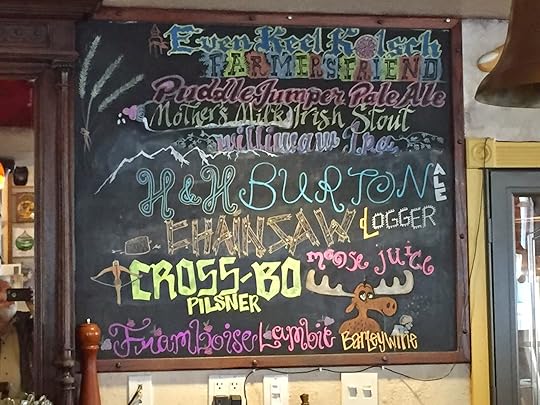 Even Keel Kolsch
FARMER'S FRIEND
Puddle Jumper Pale Ale
Mother's Milk Irish Stout
Williwaw Ipa
H&H BURTON ALE
CHAINSAW LOGGER
CROSS-BO
PILSNER
moose juice
Framboise Lambic
Barleywine